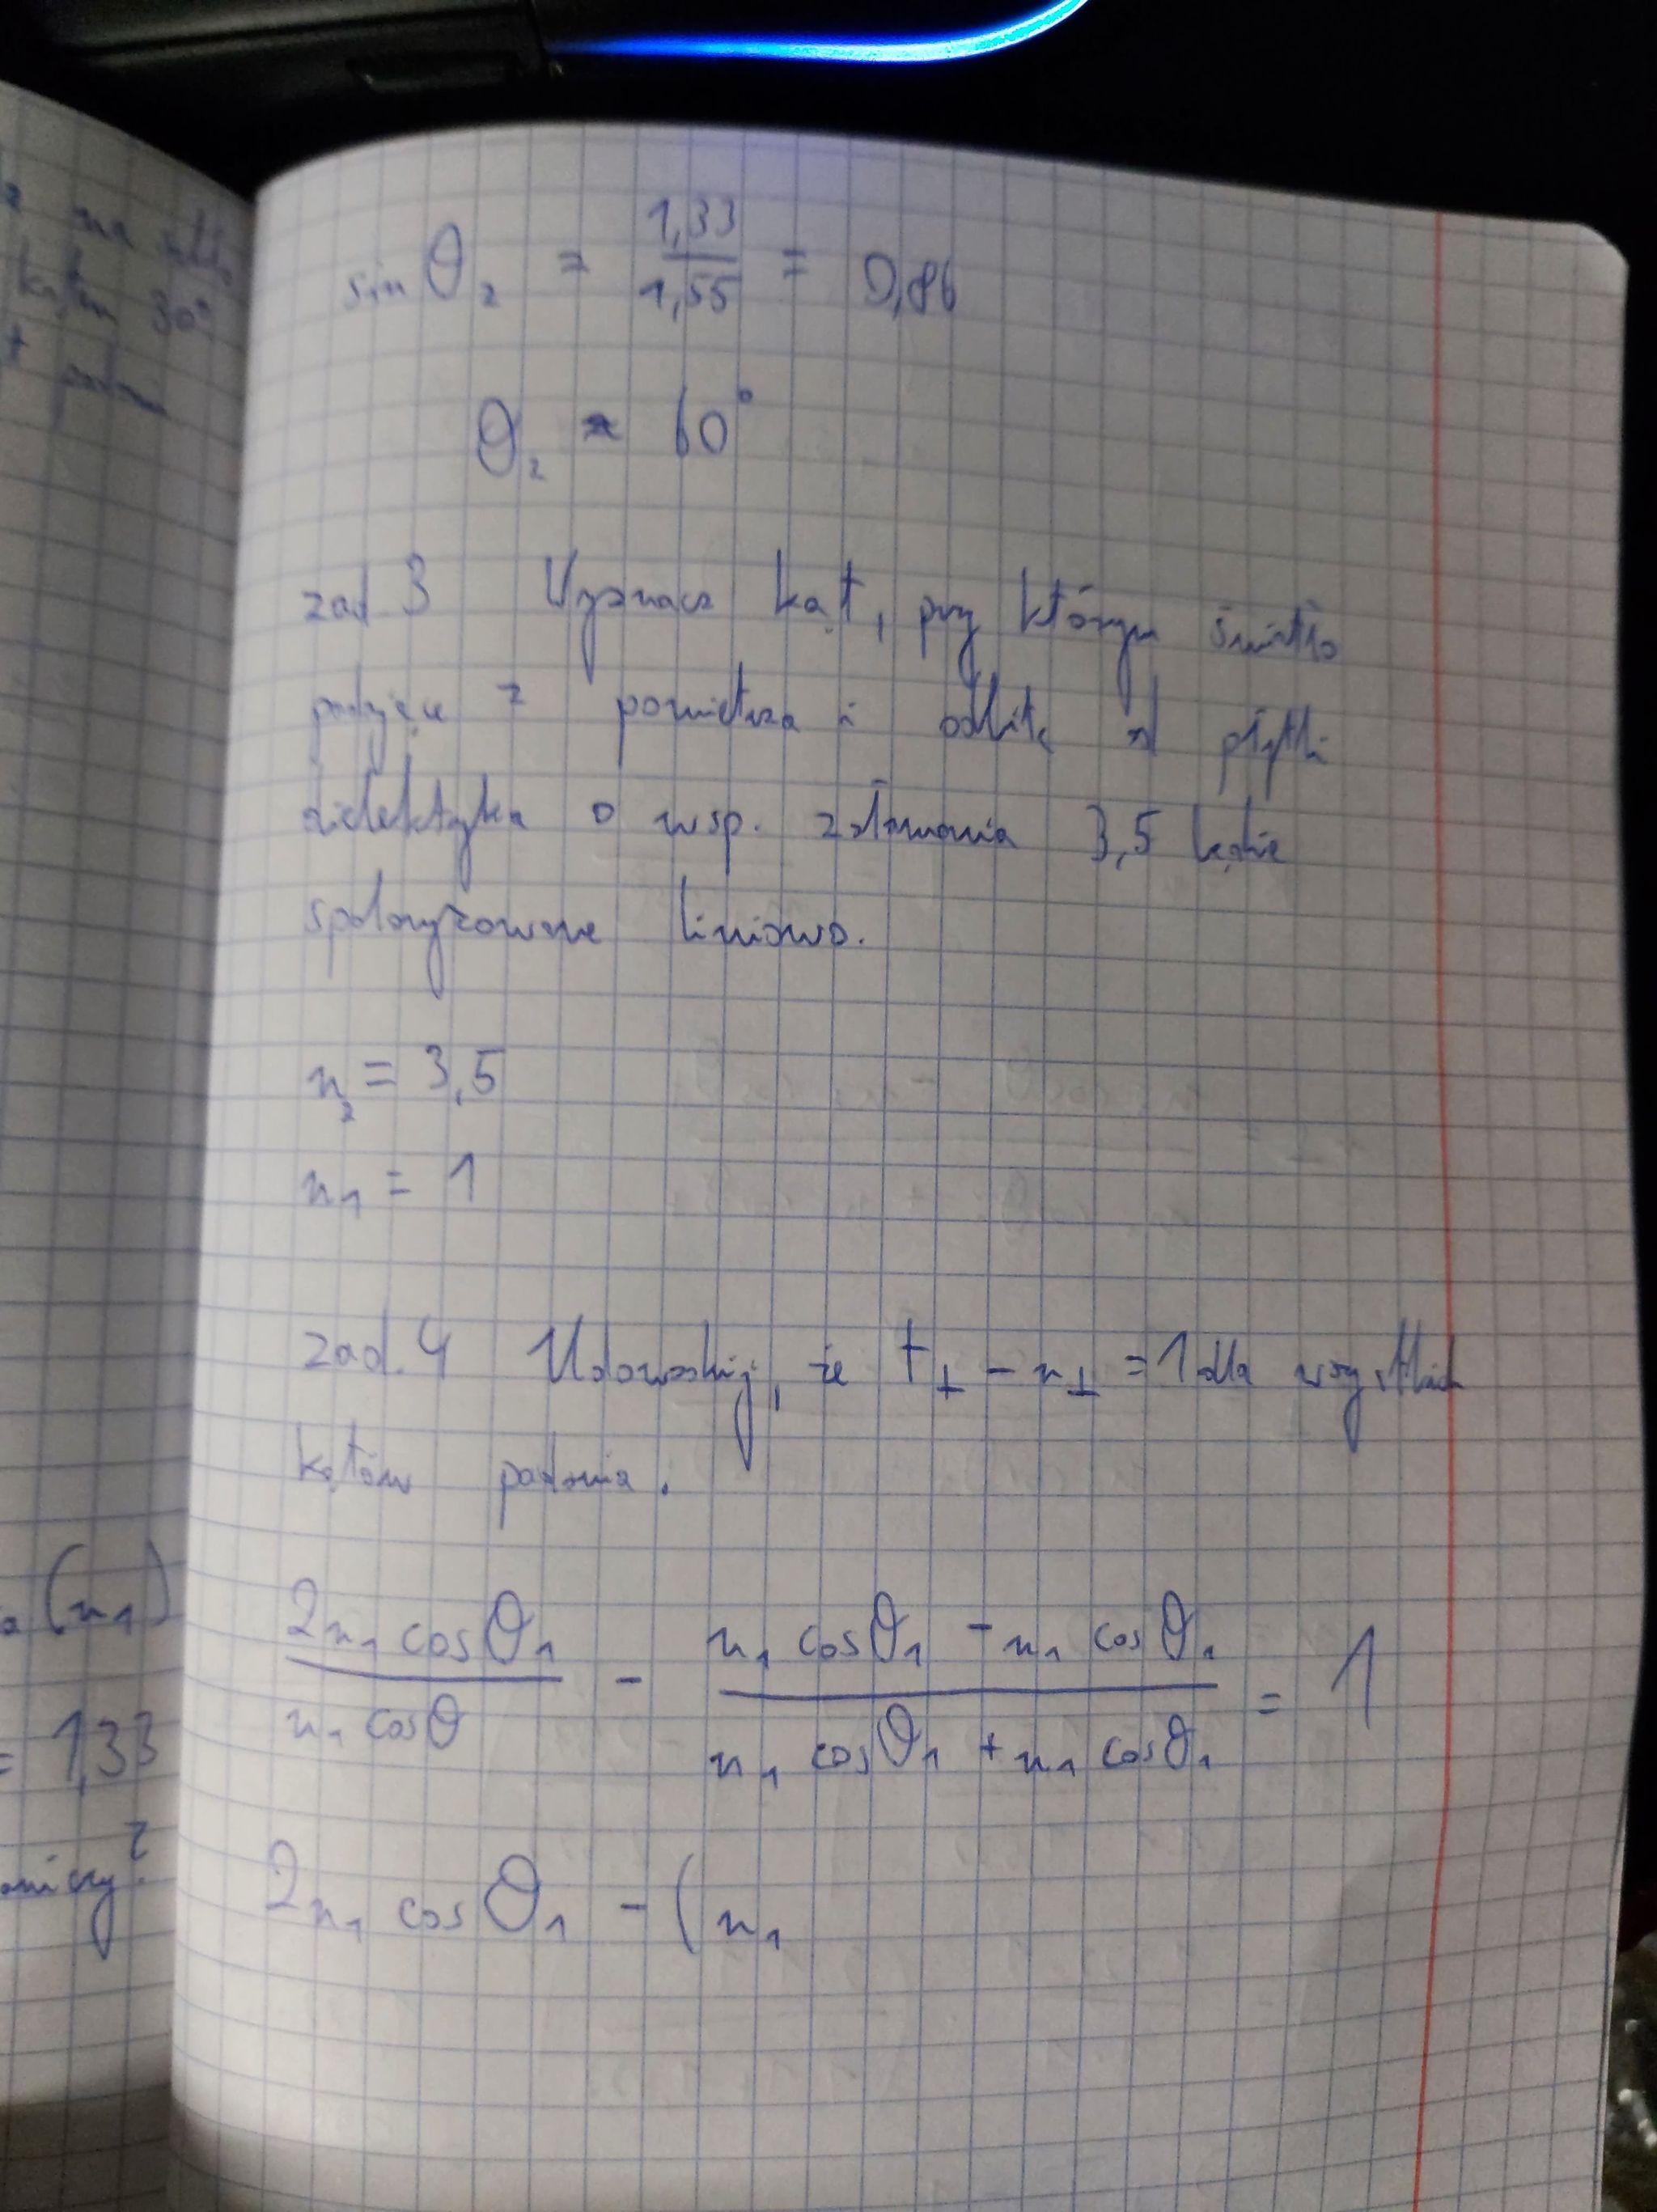 z na szkło
kątem 30°
t padania
a (n₁)
= 1,33
sin θ₂ = 1,33 / 1,55 = 0,86
θ₂ ≈ 60°
zad 3 Wyznacz kąt, przy którym światło
padające z powietrza i odbite od płytki
dielektryka o wsp. załamania 3,5 będzie
spolaryzowane liniowo.
n₂ = 3,5
n₁ = 1
zad. 4 Udowodnij, że t⊥ - r⊥ = 1 dla wszystkich
kątów padania.
2n₁ cosθ₁ / n₁ cosθ - n₁ cosθ₁ - n₁ cosθ₁ / n₁ cosθ₁ + n₁ cosθ₁ = 1
2n₁ cosθ₁ - (n₁